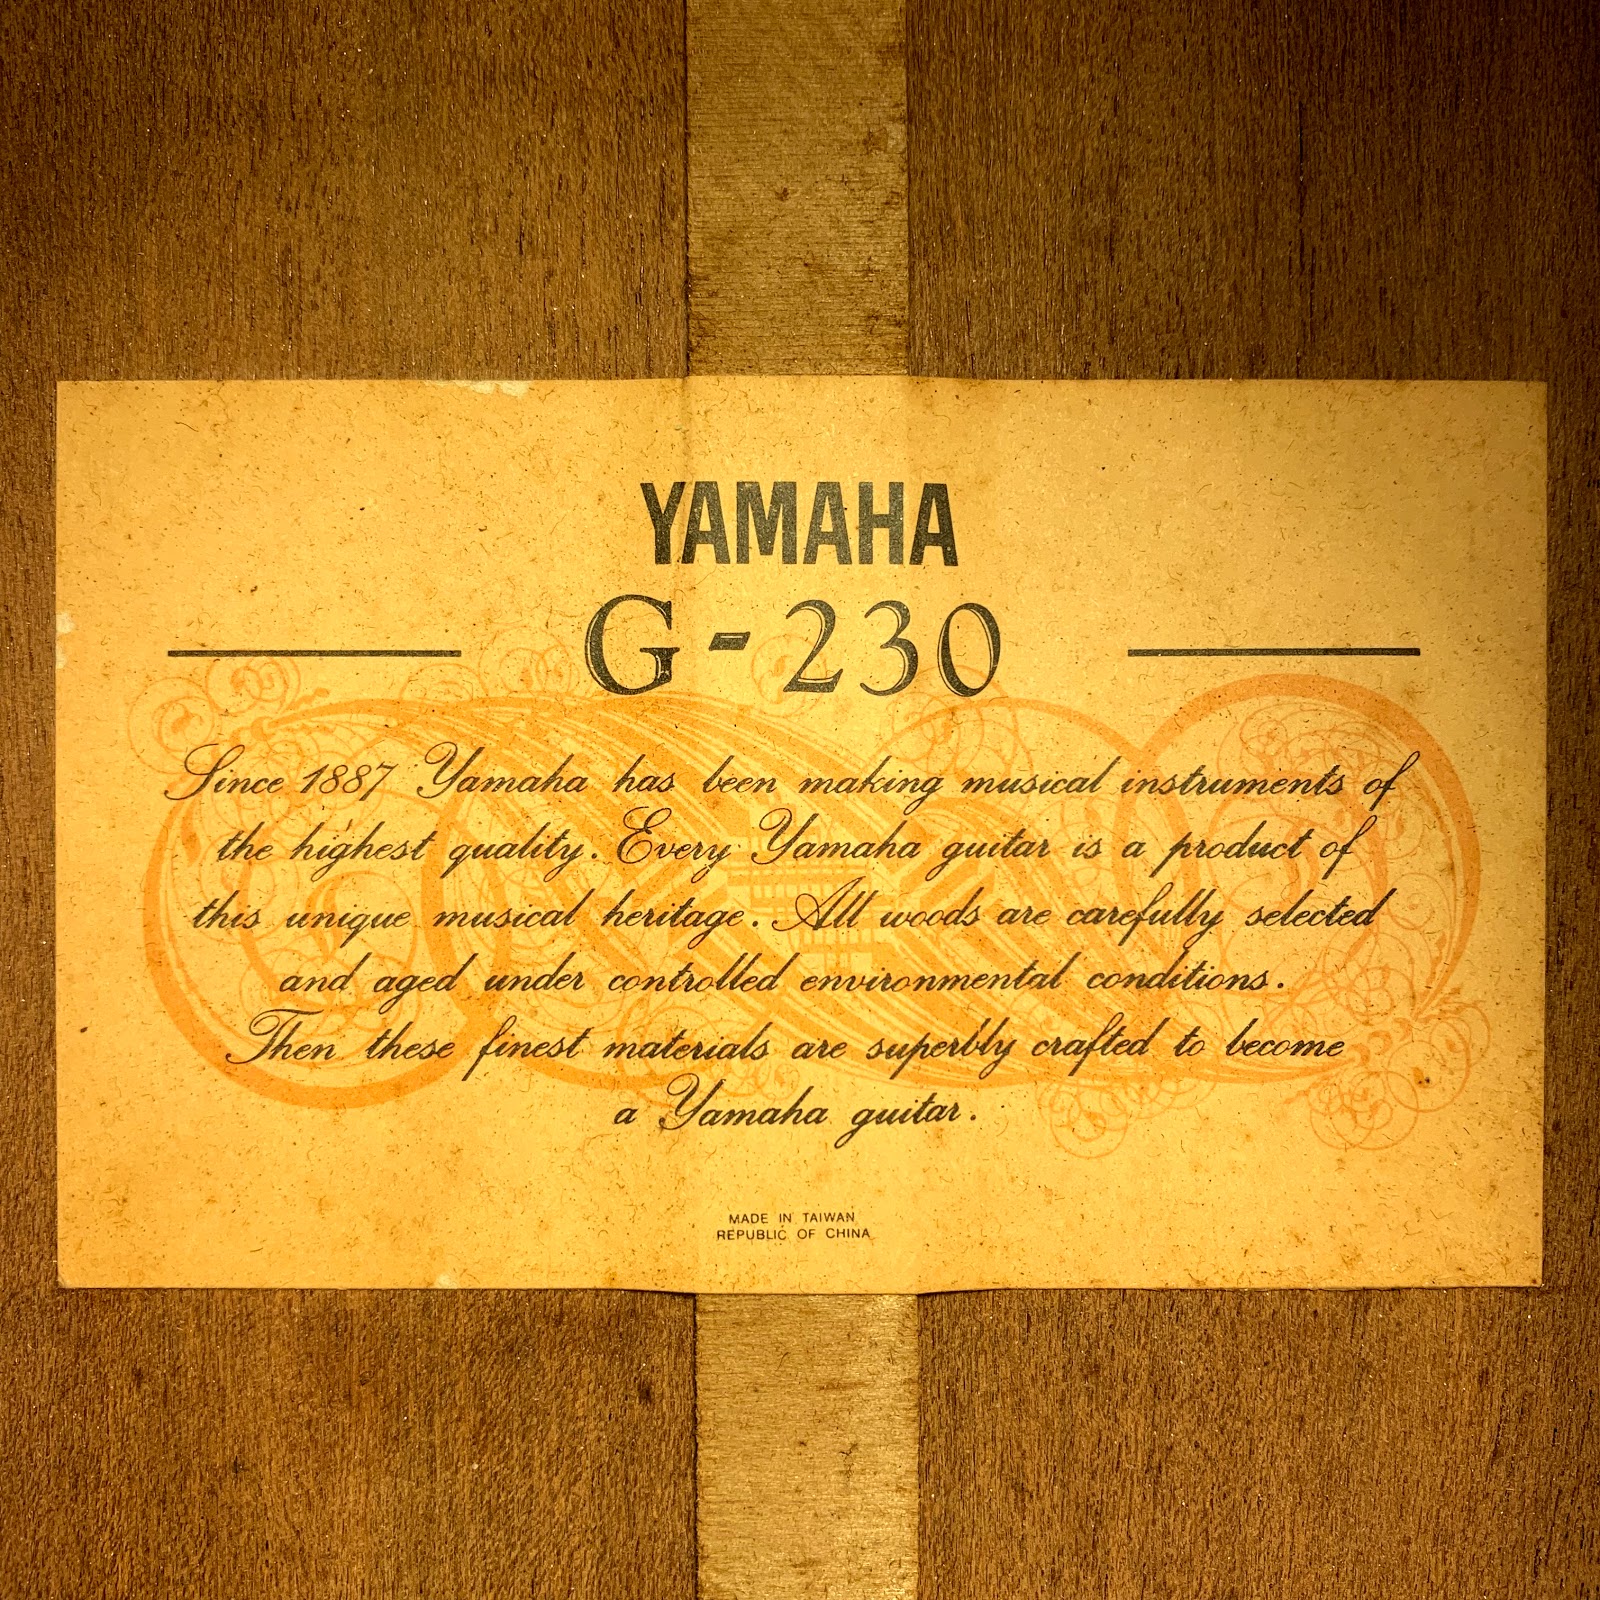 YAMAHA
G-230
Since 1887 Yamaha has been making musical instruments of
the highest quality. Every Yamaha guitar is a product of
this unique musical heritage. All woods are carefully selected
and aged under controlled environmental conditions.
Then these finest materials are superbly crafted to become
a Yamaha guitar.
MADE IN TAIWAN
REPUBLIC OF CHINA